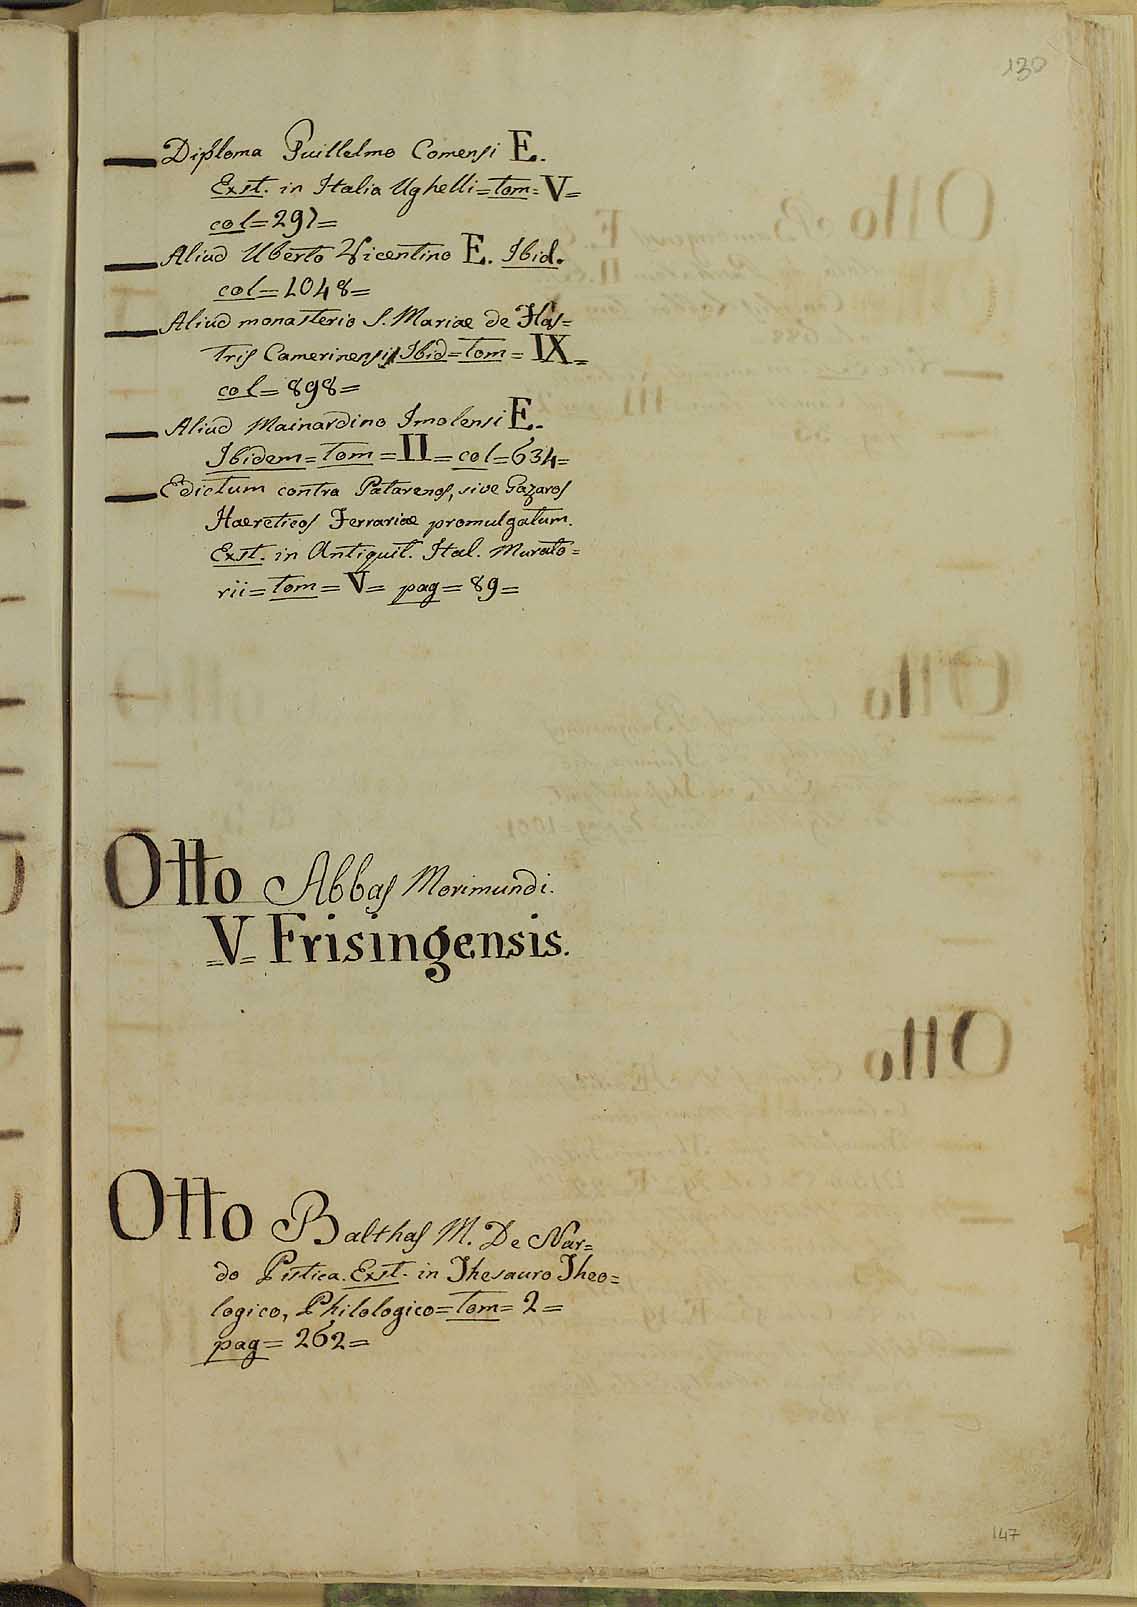 130
Diploma Guillelmo Comensi E.
Exst. in Italia Ughelli=tom=V=
col=297=
Aliud Uberto Vicentino E. Ibid.
col=1048=
Aliud monasterio S. Mariae de Has=
tris Camerinensis Ibid=tom=IX=
col=898=
Aliud Mainardino Imolensi E.
Ibidem=tom=II=col=634=
Edictum contra Patarenos, sive Gazaros
Haereticos Ferrariae promulgatum.
Exst. in Antiquit. Ital. Murato=
rii=tom=V=pag=89=
Otto Abbas Morimundi.
=V= Frisingensis.
Otto Balthas M. De Nar=
do Pistica. Exst. in Thesauro Theo=
logico, Philologico=tom=2=
pag=262=
147